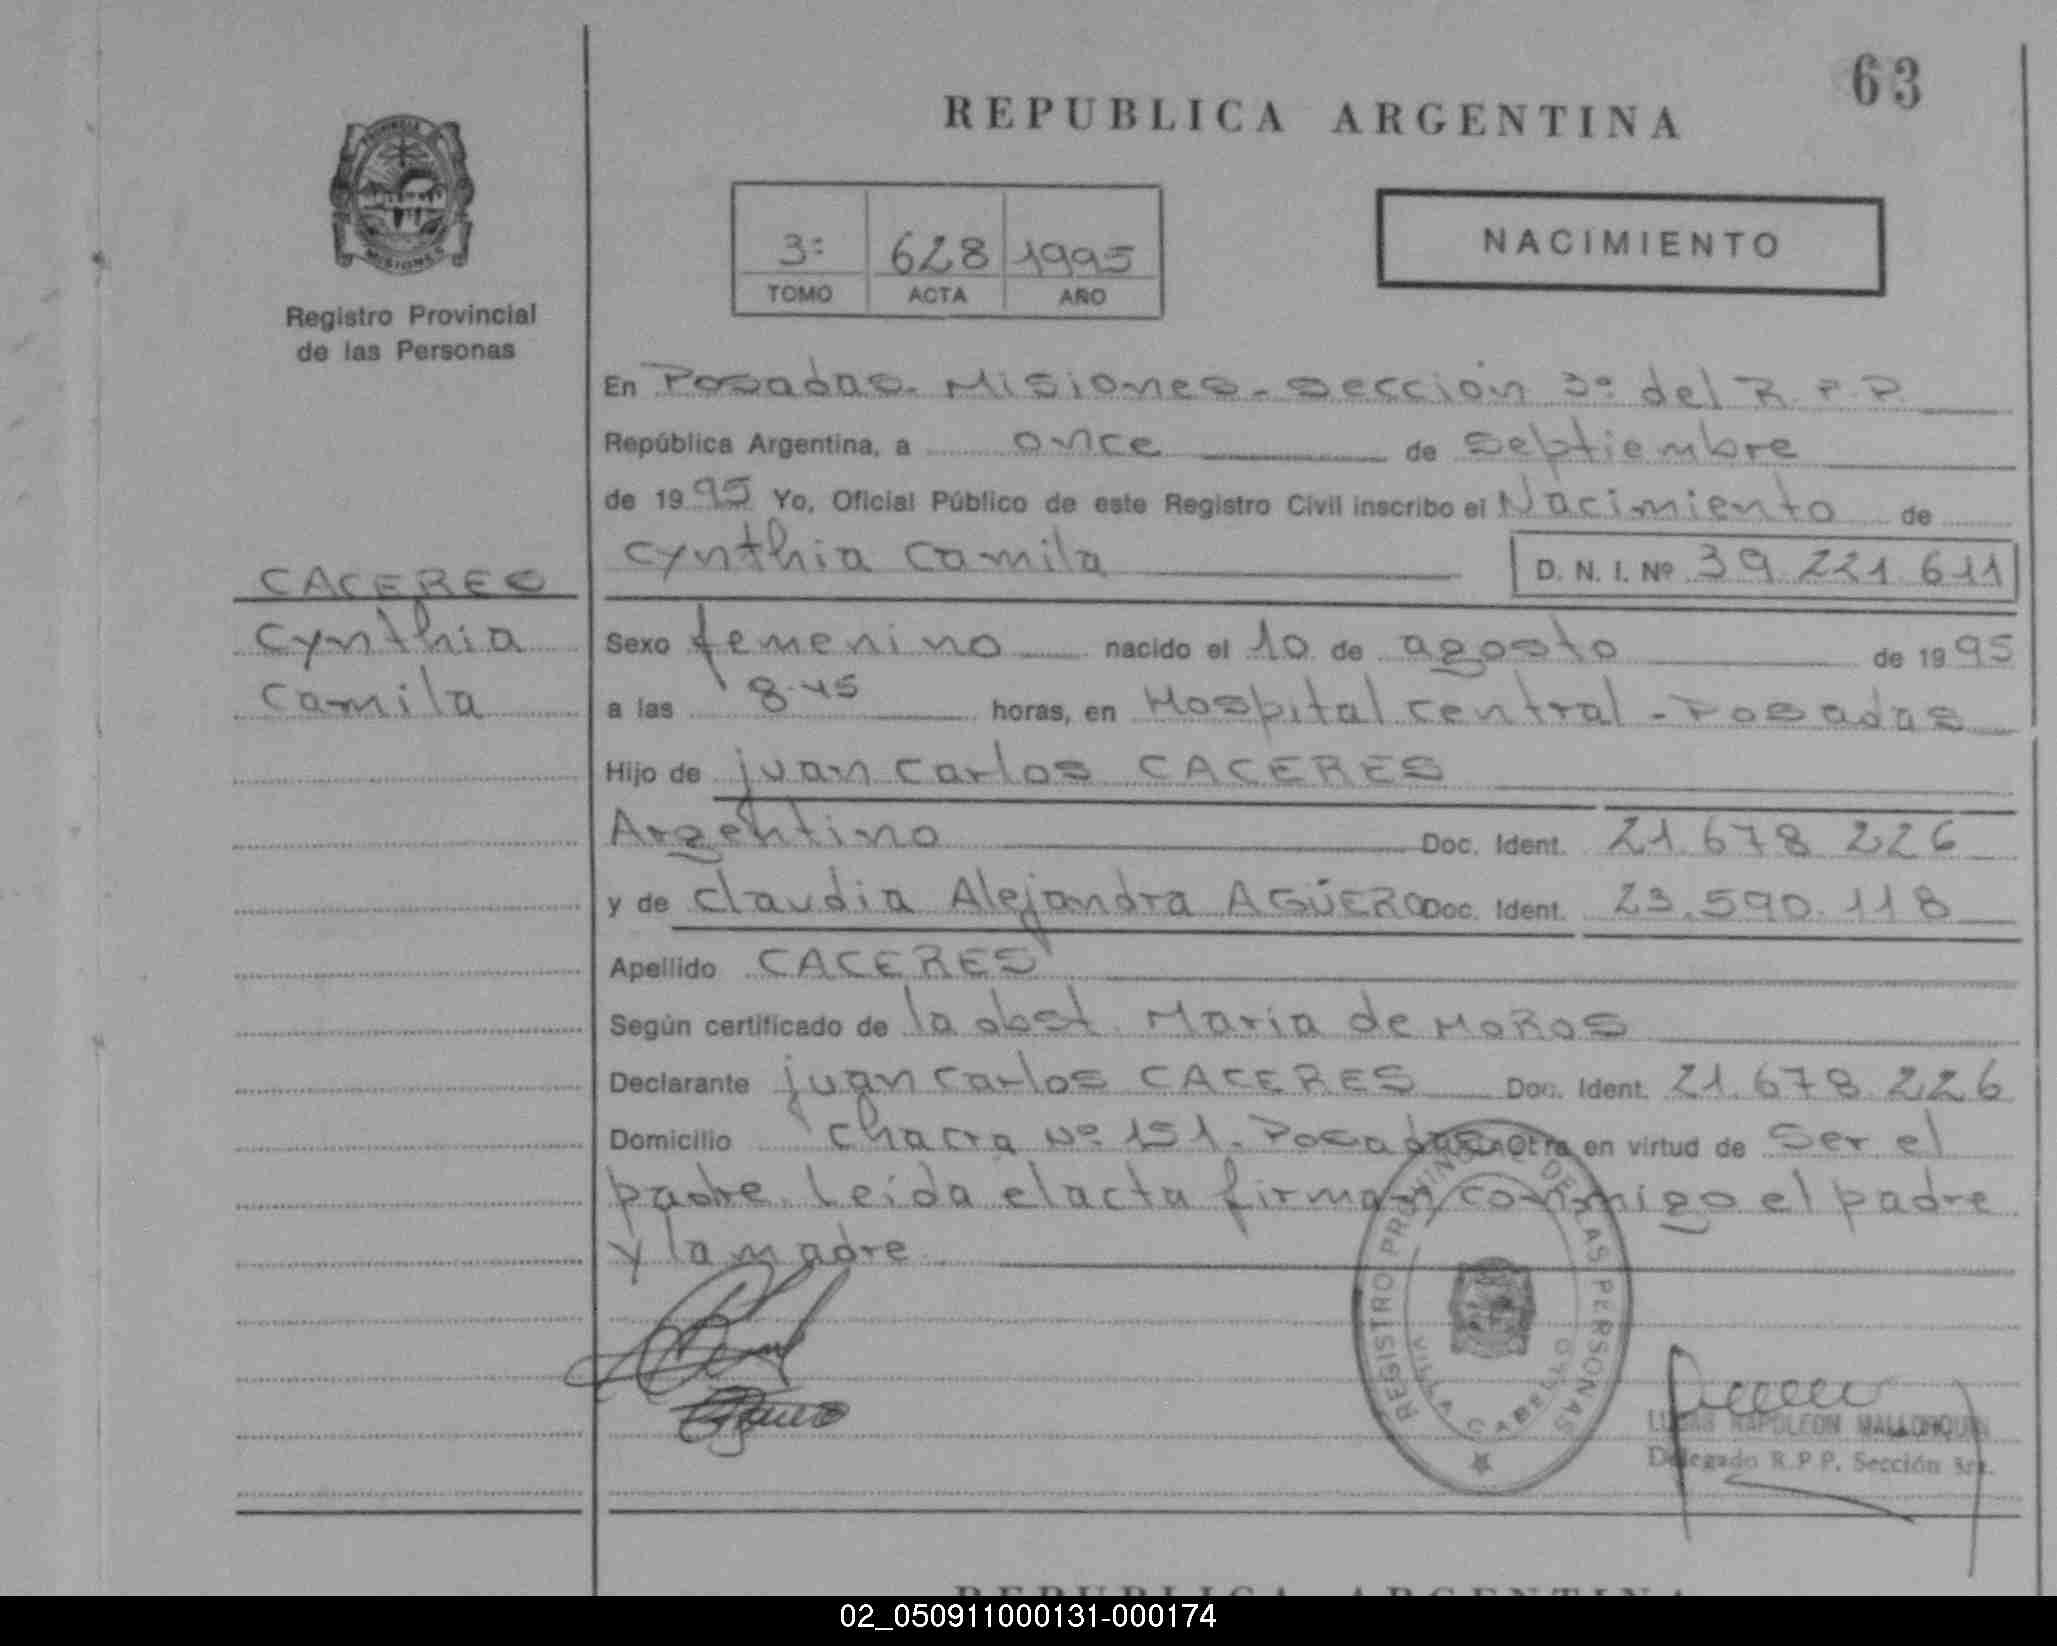 63
REPUBLICA ARGENTINA
PROVINCIA
MISIONES
Registro Provincial
de las Personas
3º 628 1995
TOMO ACTA AÑO
NACIMIENTO
En Posadas. Misiones. Sección 3º del R.P.P.
República Argentina, a once de Septiembre
de 1995 Yo, Oficial Público de este Registro Civil inscribo el Nacimiento de
Cynthia Camila D. N. I. Nº 39.221.611
CACERES
Cynthia
Camila
Sexo femenino nacido el 10 de agosto de 1995
a las 8.45 horas, en Hospital Central - Posadas
Hijo de Juan Carlos CACERES
Argentino Doc. Ident. 21.678.226
y de Claudia Alejandra AGÜERO Doc. Ident. 23.590.118
Apellido CACERES
Según certificado de la obst. María de MOROS
Declarante Juan Carlos CACERES Doc. Ident. 21.678.226
Domicilio Chacra Nº 151. Posadas en virtud de Ser el
padre. Leída el acta firman conmigo el padre
y la madre
REGISTRO PROVINCIAL DE LAS PERSONAS
VILLA CABELLO
LUCAS NAPOLEON
Delegado R.P.P. Sección 3ra.
REPUBLICA ARGENTINA
02_050911000131-000174